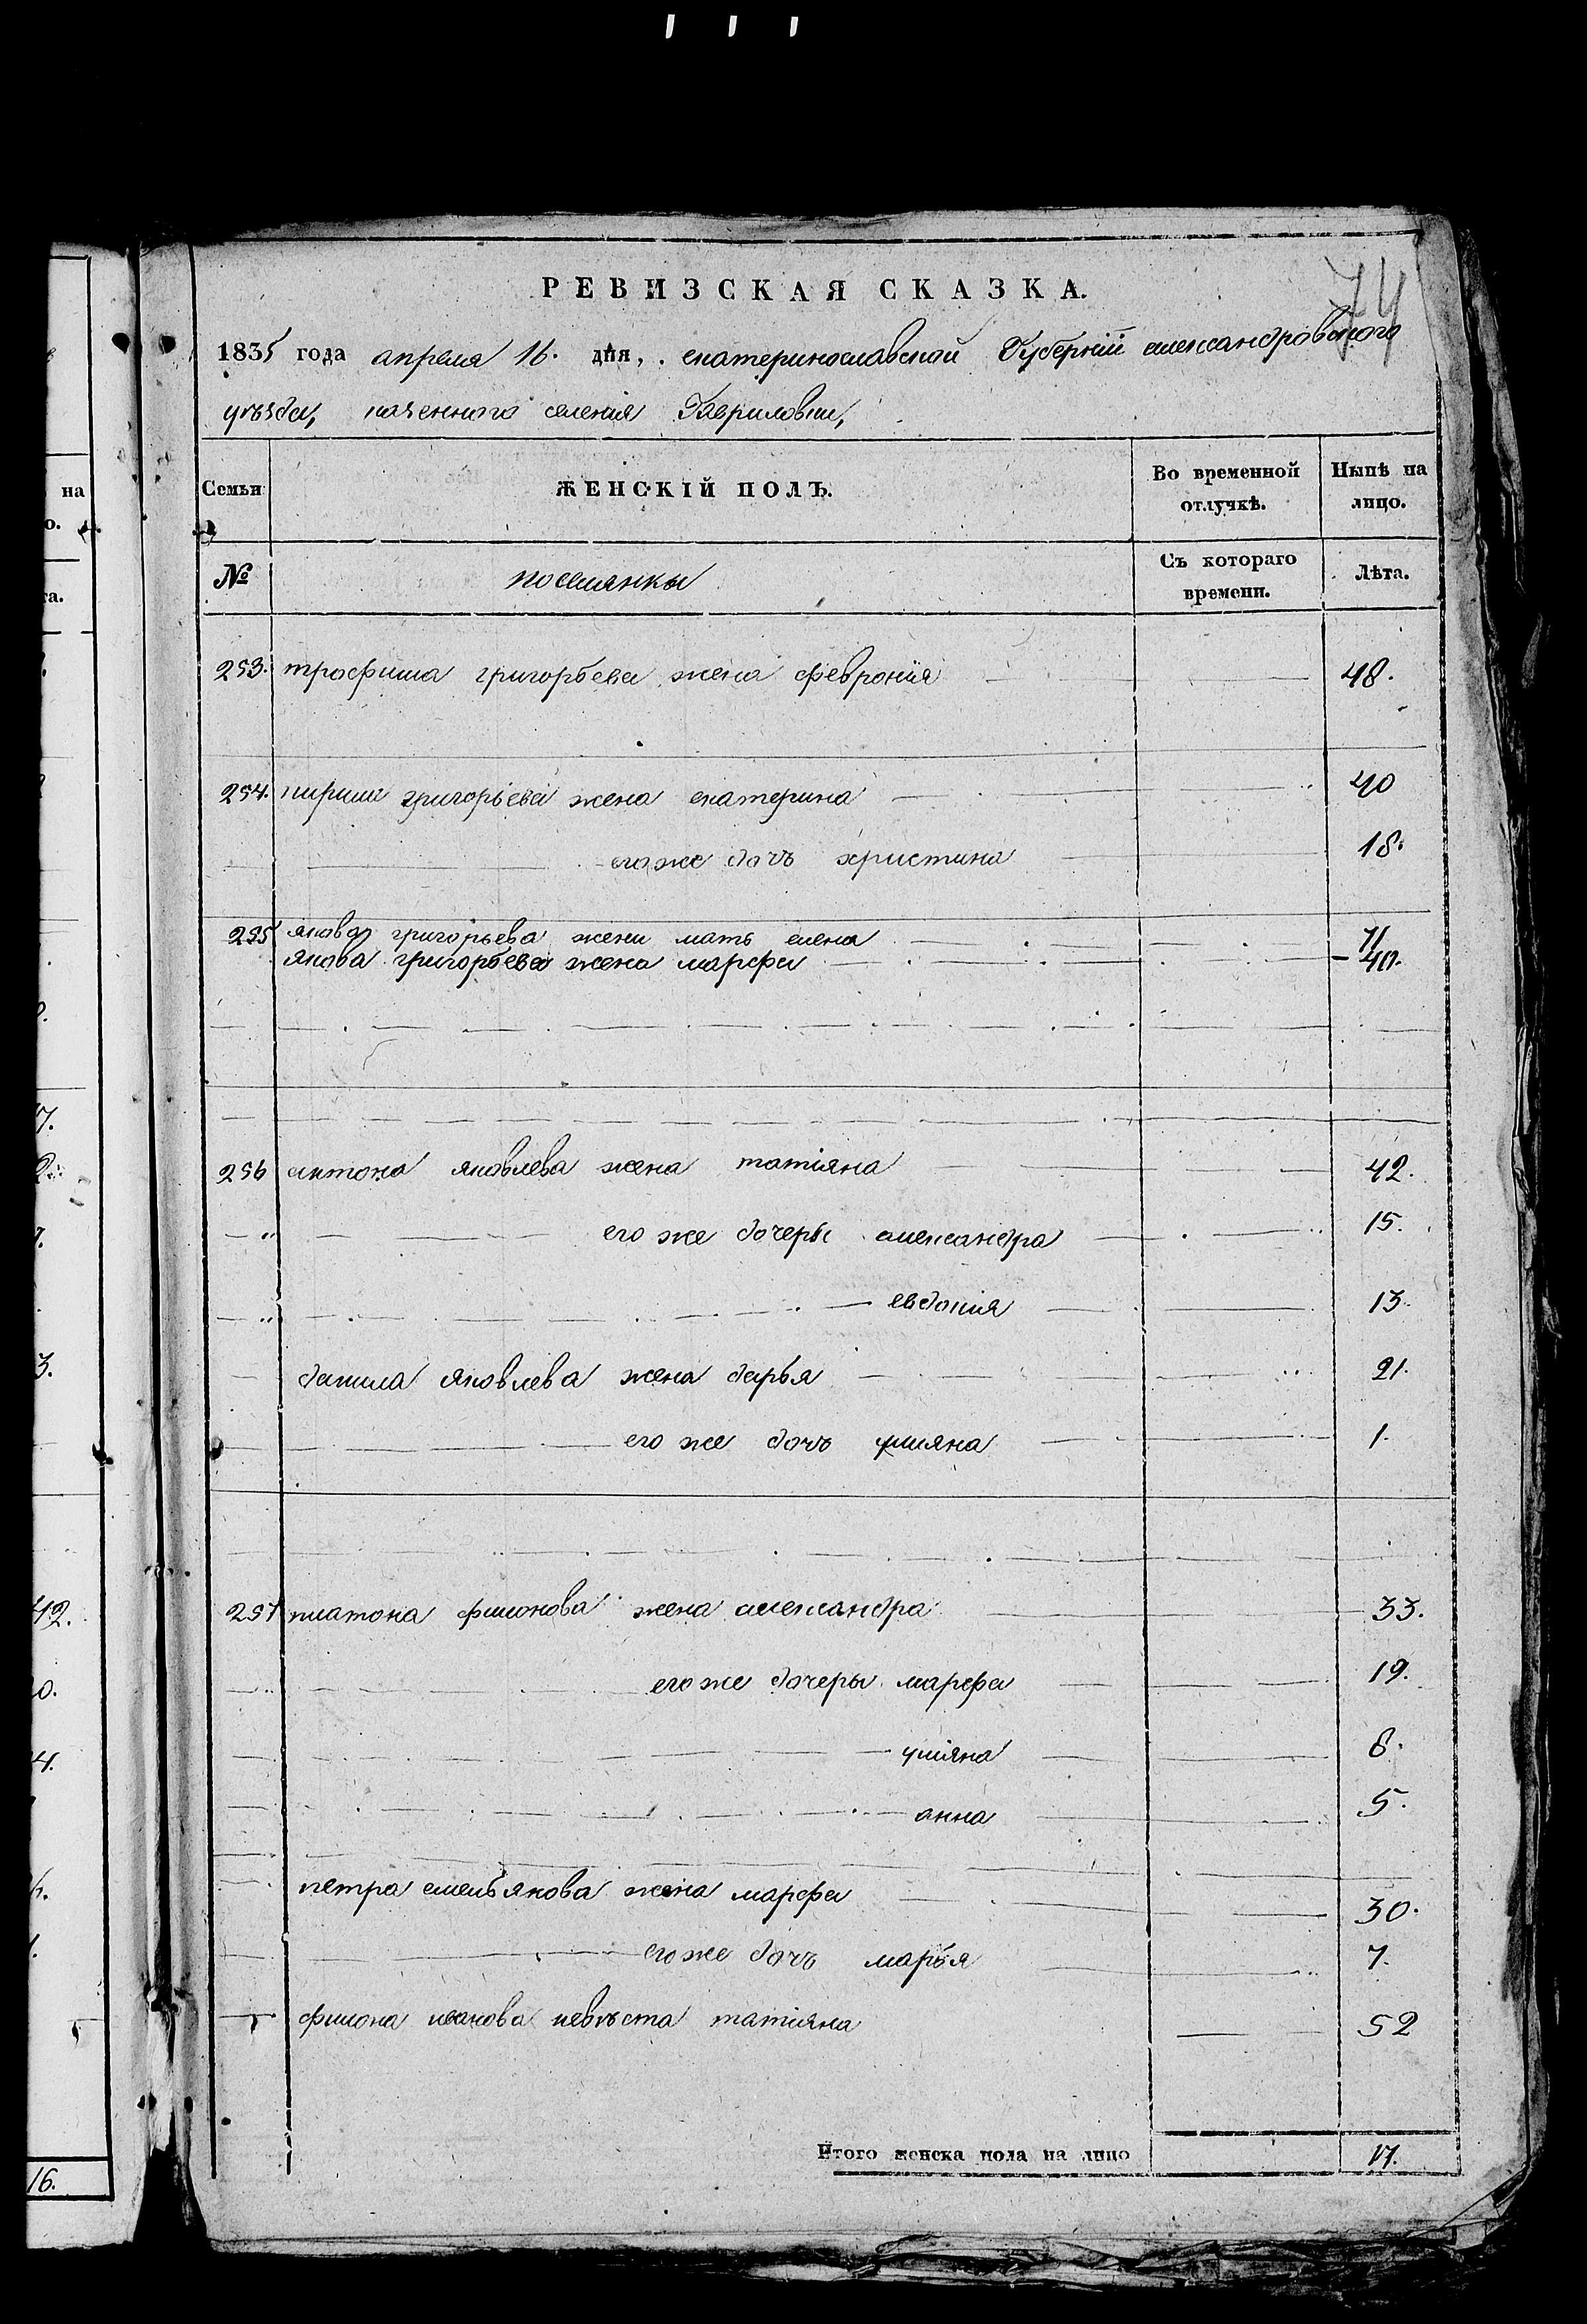 74
РЕВИЗСКАЯ СКАЗКА.
1835 года апреля 16. дня, екатеринославской Губернiи александровского
уѣзда, казенного селенiя Гавриловки,
Семьи ЖЕНСКIЙ ПОЛЪ. Во временной отлучкѣ. Нынѣ на лицо.
№ поселянки Съ котораго времени. Лѣта.
253. трофима григорьева жена феврониiя 48.
254. кирила григорьева жена екатерина 40
его же дочь христина 18.
255 якова григорьева жени мать елена 71
якова григорьева жена марфа 40.
256 антона яковлева жена татiяна 42.
его же дочери александра 15.
евдокiя 13.
данила яковлева жена дарья 21.
его же дочь улияна 1.
257 платона филонова жена александра 33.
его же дочери марфа 19.
улiяна 8.
анна 5.
петра емельянова жена марфа 30.
его же дочь марья 7.
филона иванова невѣста татияна 52
Итого женска пола на лицо 17.
на
о.
та.
7.
3.
42.
0.
4.
16.